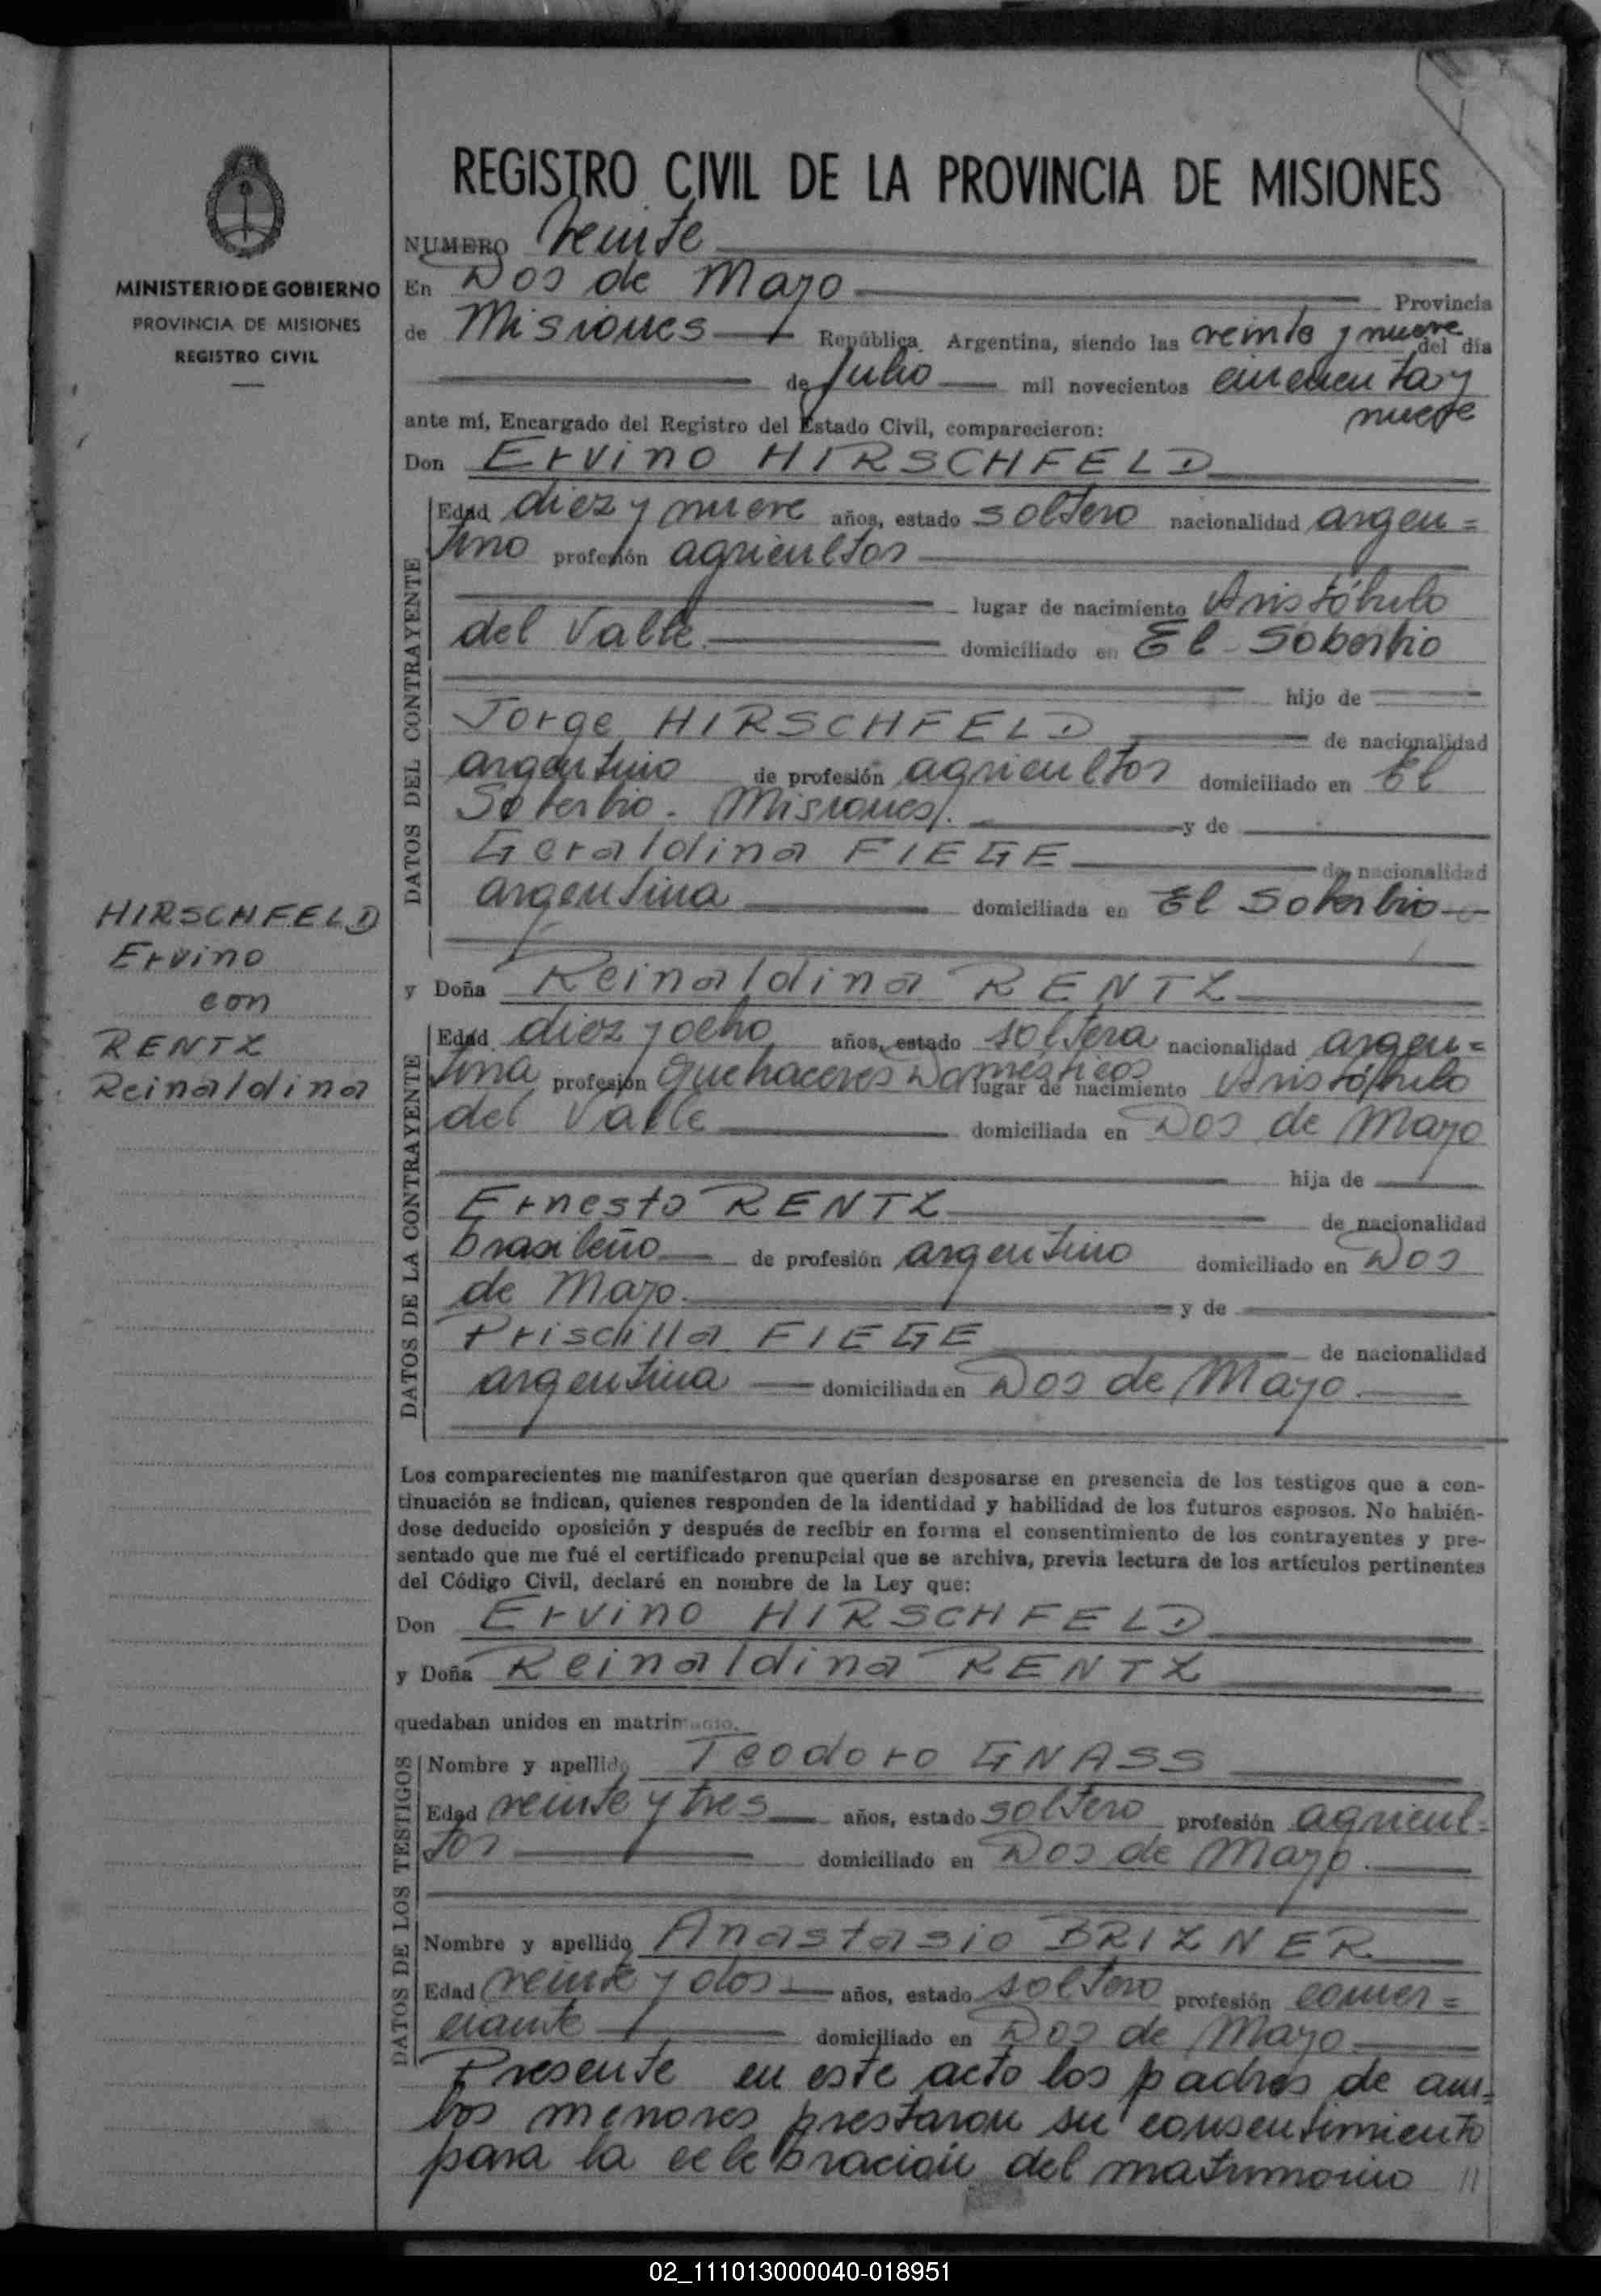 REGISTRO CIVIL DE LA PROVINCIA DE MISIONES
MINISTERIO DE GOBIERNO
PROVINCIA DE MISIONES
REGISTRO CIVIL
NUMERO Veinte
En Dos de Mayo Provincia
de Misiones República Argentina, siendo las veinte y nueve del día
de Julio mil novecientos cincuenta y
nueve
ante mí, Encargado del Registro del Estado Civil, comparecieron:
Don Ervino HIRSCHFELD
DATOS DEL CONTRAYENTE
Edad diez y nueve años, estado soltero nacionalidad argen=
tino profesión agricultor
lugar de nacimiento Aristóbulo
del Valle. domiciliado en El Soberbio
hijo de
Jorge HIRSCHFELD de nacionalidad
argentino de profesión agricultor domiciliado en El
Soberbio. Misiones. y de
Geraldina FIEGE de nacionalidad
argentina domiciliada en El Soberbio
HIRSCHFELD
Ervino
con
RENTZ
Reinaldina
y Doña Reinaldina RENTZ
DATOS DE LA CONTRAYENTE
Edad diez y ocho años, estado soltera nacionalidad argen=
tina profesión Quehaceres Domésticos lugar de nacimiento Aristóbulo
del Valle domiciliada en Dos de Mayo
hija de
Ernesto RENTZ de nacionalidad
brasileño de profesión argentino domiciliado en Dos
de Mayo. y de
Priscilla FIEGE de nacionalidad
argentina domiciliada en Dos de Mayo.
Los comparecientes me manifestaron que querían desposarse en presencia de los testigos que a con-
tinuación se indican, quienes responden de la identidad y habilidad de los futuros esposos. No habién-
dose deducido oposición y después de recibir en forma el consentimiento de los contrayentes y pre-
sentado que me fué el certificado prenupcial que se archiva, previa lectura de los artículos pertinentes
del Código Civil, declaré en nombre de la Ley que:
Don Ervino HIRSCHFELD
y Doña Reinaldina RENTZ
quedaban unidos en matrimonio.
DATOS DE LOS TESTIGOS
Nombre y apellido Teodoro GNASS
Edad veinte y tres años, estado soltero profesión agricul=
tor domiciliado en Dos de Mayo.
Nombre y apellido Anastasio BRIZNER
Edad veinte y dos años, estado soltero profesión comer=
ciante domiciliado en Dos de Mayo
Presente en este acto los padres de am=
bos menores prestaron su consentimiento
para la celebración del matrimonio //
02_111013000040-018951